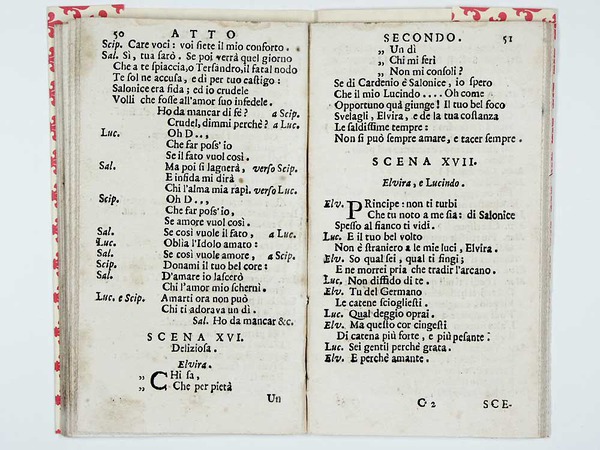 50 ATTO
Scip. Care voci: voi siete il mio conforto.
Sal. Sì, tua sarò. Se poi verrà quel giorno
Che a te spiaccia, o Tersandro, il fatal nodo
Te sol ne accusa, e di per tuo castigo:
Salonice era fida; ed io crudele
Volli che fosse all'amor suo infedele.
Ho da mancar di fè? a Scip.
Crudel, dimmi perchè? a Luc.
Luc. Oh D..,
Che far poss'io
Se il fato vuol così.
Sal. Ma poi si lagnerà, verso Scip.
E infida mi dirà
Chi l'alma mia rapì. verso Luc.
Scip. Oh D..,
Che far poss'io,
Se amore vuol così.
Sal. Se così vuole il fato, a Luc.
Luc. Oblia l'Idolo amato:
Sal. Se così vuole amore, a Scip.
Scip. Donami il tuo bel core:
Sal. D'amare io lascerò
Chi l'amor mio schernì.
Luc. e Scip. Amarti ora non può
Chi ti adorava un dì.
Sal. Ho da mancar &c.
SCENA XVI.
Deliziosa.
Elvira.
„ CHi sa,
„ Che per pietà
Un
SECONDO. 51
„ Un dì
„ Chi mi ferì
„ Non mi consoli?
Se di Cardenio è Salonice, io spero
Che il mio Lucindo.... Oh come
Opportuno quà giunge! Il tuo bel foco
Svelagli, Elvira, e de la tua costanza
Le saldissime tempre:
Non si può sempre amare, e tacer sempre.
SCENA XVII.
Elvira, e Lucindo.
Elv. PRincipe: non ti turbi
Che tu noto a me sia: di Salonice
Spesso al fianco ti vidi.
Luc. E il tuo bel volto
Non è straniero a le mie luci, Elvira.
Elv. So qual sei, qual ti fingi;
E ne morrei pria che tradir l'arcano.
Luc. Non diffido di te.
Elv. Tu del Germano
Le catene sciogliesti.
Luc. Qual deggio oprai.
Elv. Ma questo cor cingesti
Di catena più forte, e più pesante.
Luc. Sei gentil perchè grata.
Elv. E perchè amante.
C 2 SCE-